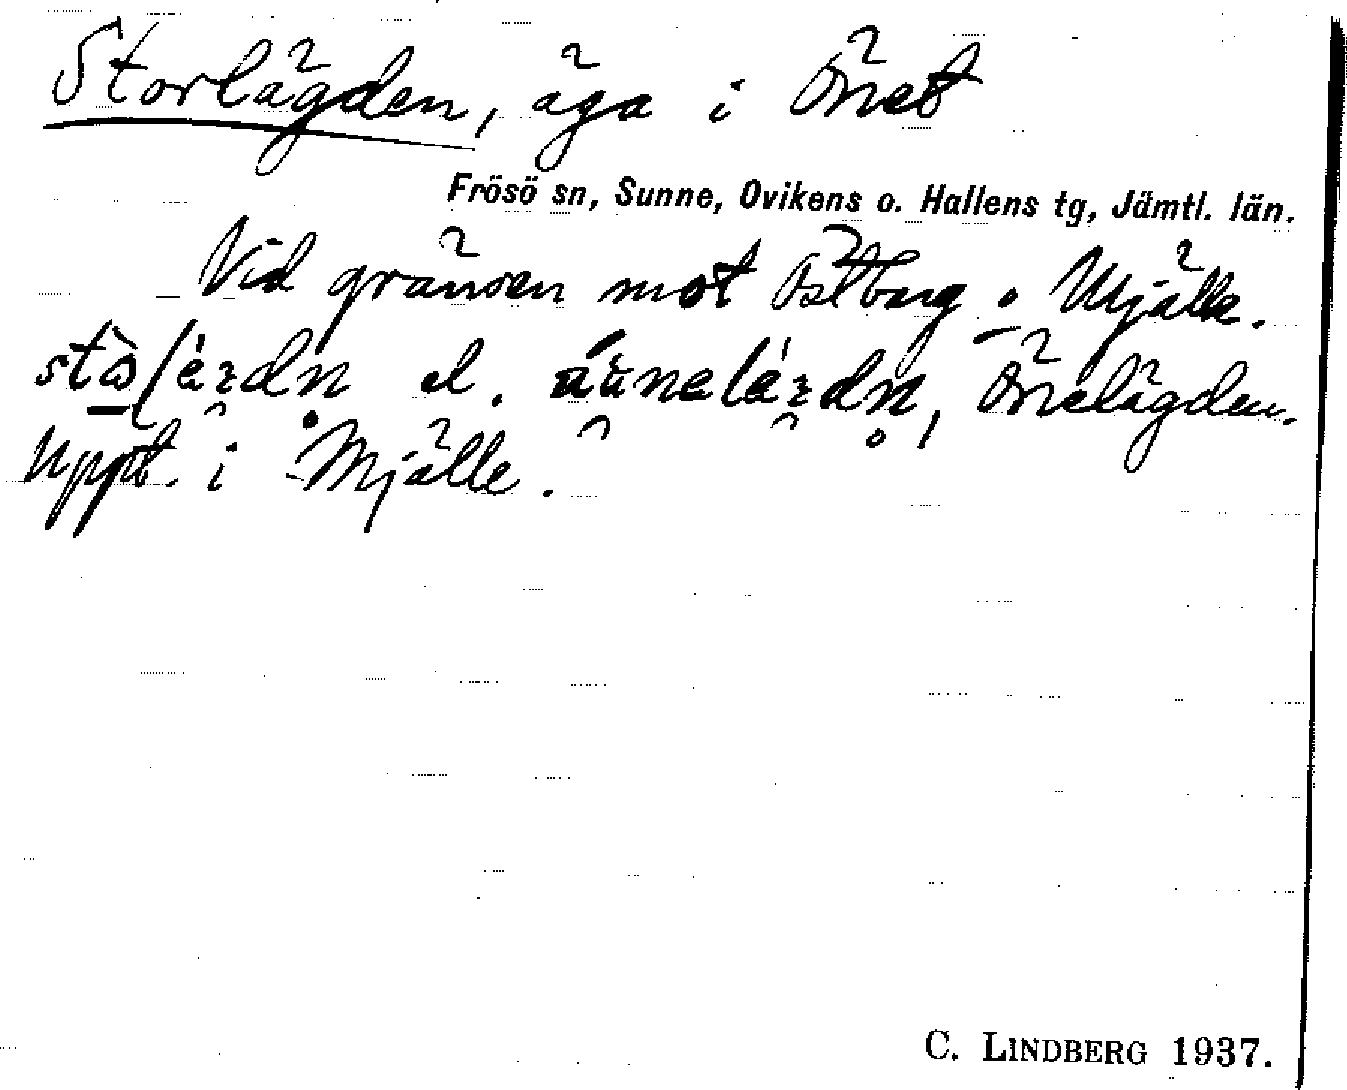 Storlägden, äga i Önet
Frösö sn, Sunne, Ovikens o. Hallens tg, Jämtl. län.
Vid gränsen mot Östberg o Mjälle.
el. Önelägden.
Uppt. i Mjälle.
C. LINDBERG 1937.